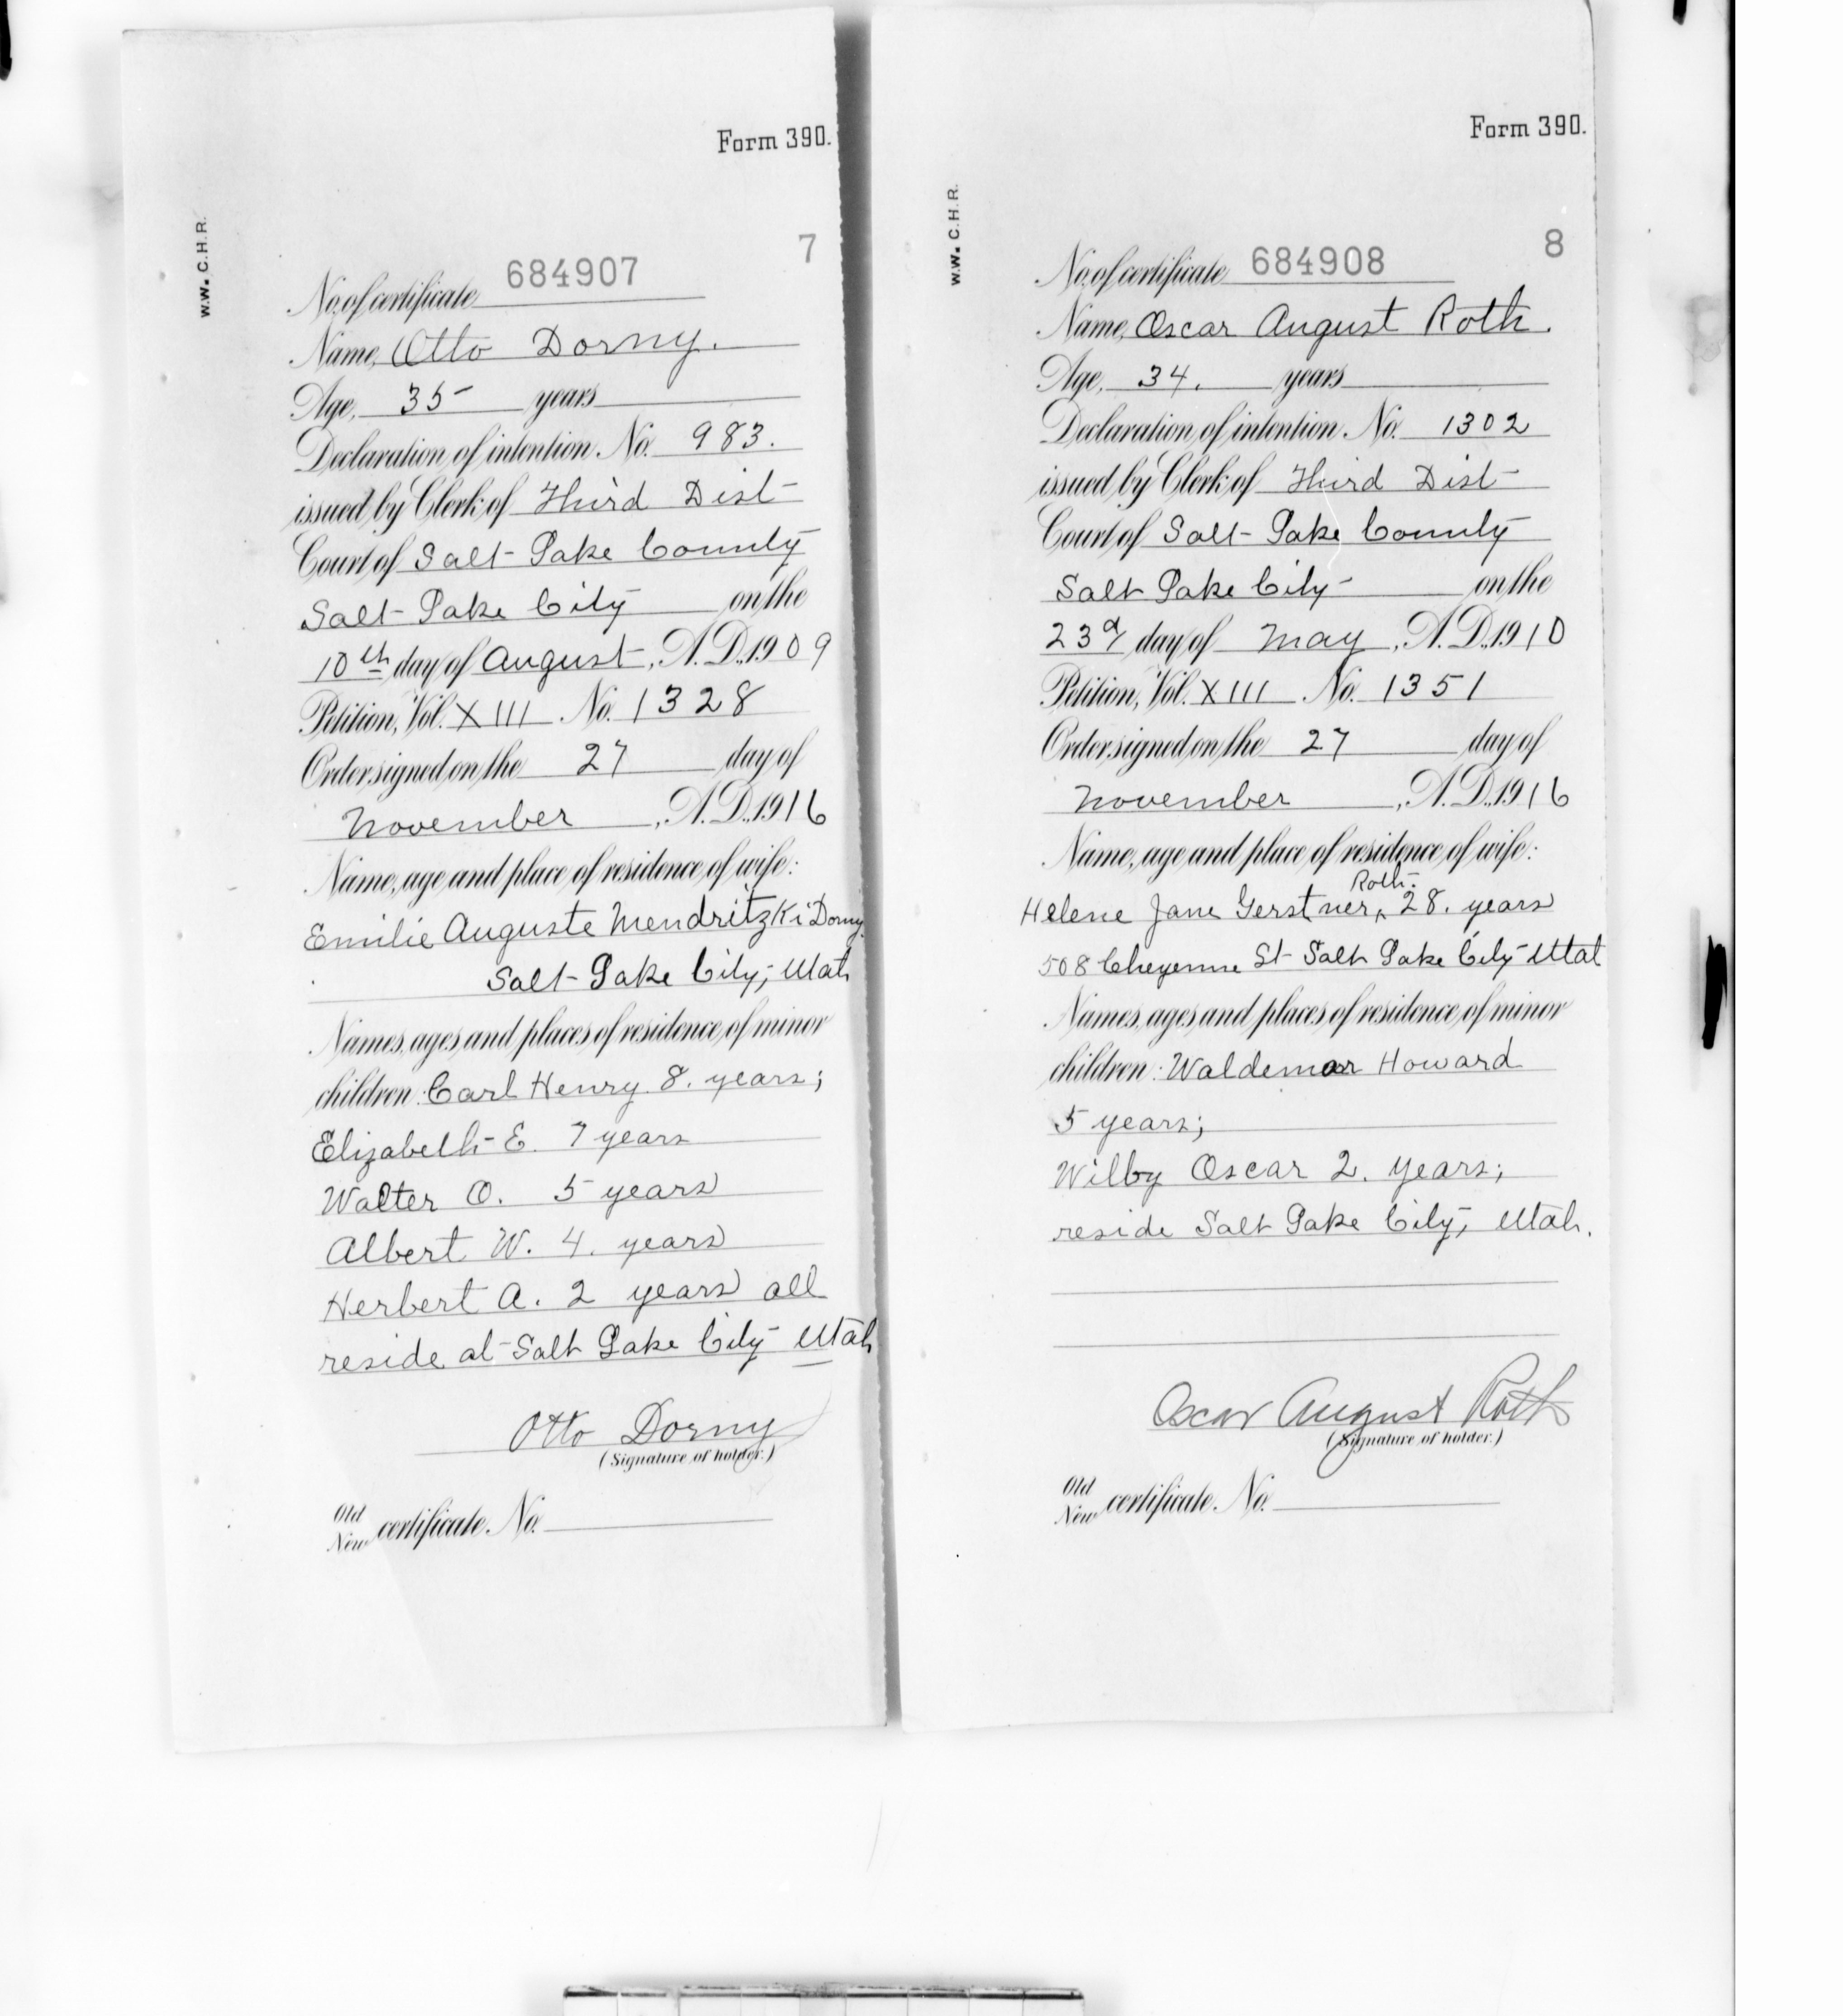 Form 390.
W.W. C.H.R.
7
No. of certificate 684907
Name, Otto Dorny.
Age, 35 years
Declaration of intention No. 983.
issued by Clerk of Third Dist
Court of Salt Lake County
Salt Lake City on the
10th day of August, A.D. 1909
Petition, Vol. XIII No. 1328
Order signed on the 27 day of
November, A.D. 1916
Name, age and place of residence of wife:
Emilie Auguste Mendritzki Dorny.
Salt Lake City, Utah
Names, ages and places of residence of minor
children: Carl Henry 8. years;
Elizabeth E. 7 years
Walter O. 5 years
Albert W. 4. years
Herbert A. 2 years all
reside at Salt Lake City Utah
Otto Dorny
(Signature of holder.)
Old
New certificate No.
Form 390.
W.W. C.H.R.
8
No. of certificate 684908
Name, Oscar August Roth.
Age, 34. years
Declaration of intention No. 1302
issued by Clerk of Third Dist
Court of Salt Lake County
Salt Lake City on the
23d day of May, A.D. 1910
Petition, Vol. XIII No. 1351
Order signed on the 27 day of
November, A.D. 1916
Name, age and place of residence of wife:
Helene Jane Gerstner, Roth 28. years
508 Cheyenne St Salt Lake City Utah
Names, ages and places of residence of minor
children: Waldemar Howard
5 years;
Wilby Oscar 2. years;
reside Salt Lake City, Utah.
Oscar August Roth
(Signature of holder.)
Old
New certificate No.